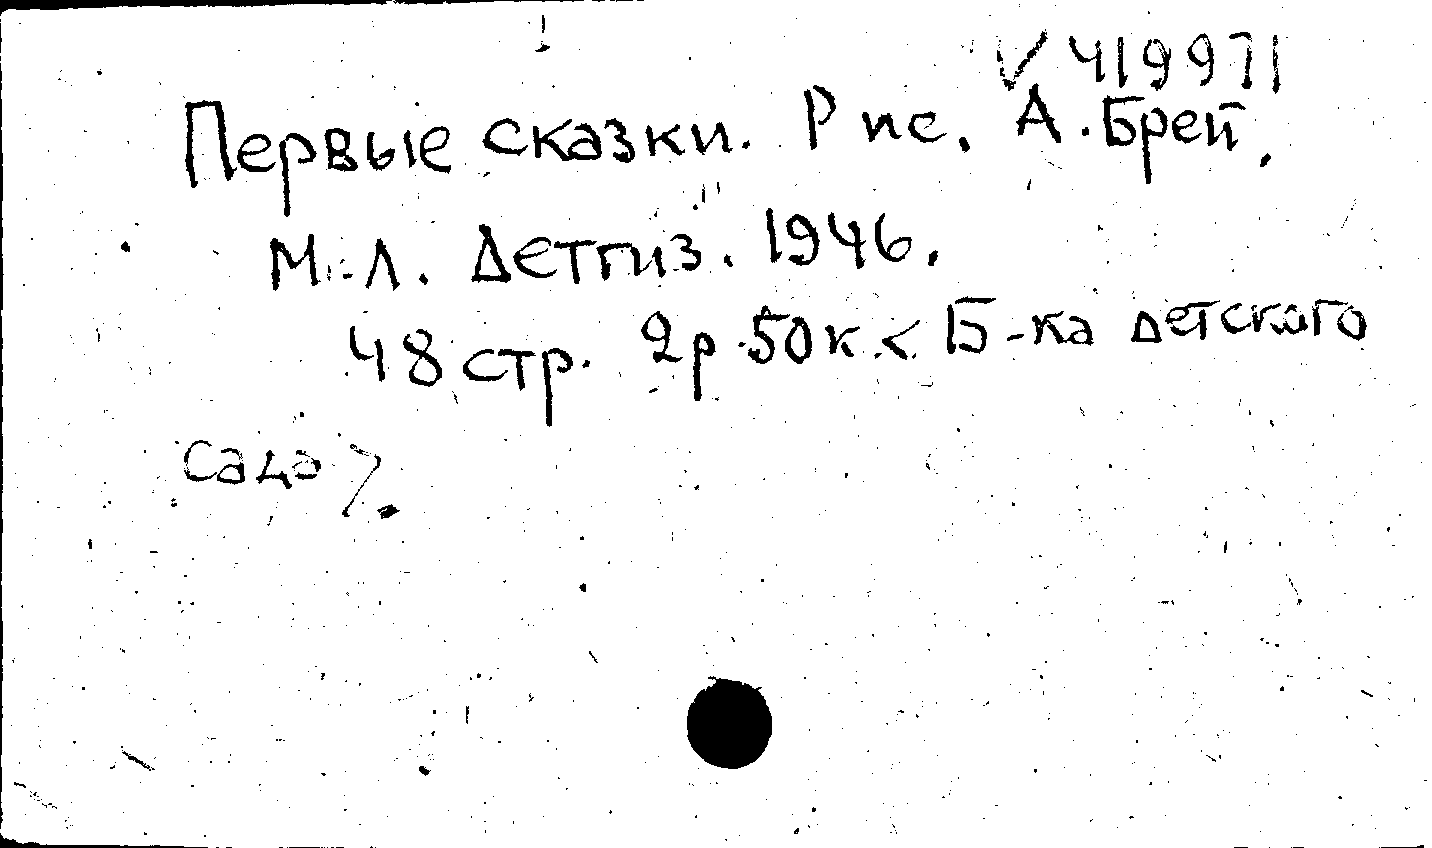 ✓ 419971
Первые сказки. Рис. А. Брей.
М.-Л. Детгиз. 1946.
48 стр. 2р. 50к. < Б-ка детского
сада >.